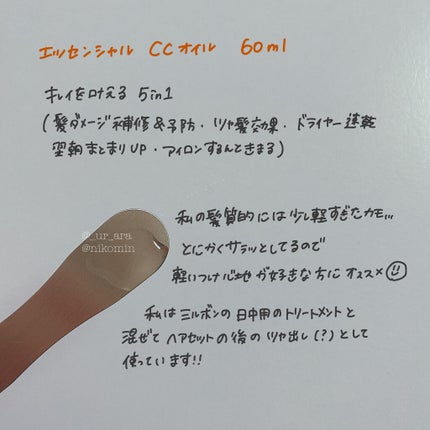 エッセンシャル CCオイル 60ml
キレイを叶える 5in1
(髪ダメージ補修&予防・ツヤ髪効果・ドライヤー速乾
翌朝まとまりUP・アイロンするんときまる)
私の髪質的には少し軽すぎたカモ…
とにかくサラッとしてるので
軽いつけ心地が好きな方にオススメ
@_ur_ara
@nikomin
私はミルボンの日中用のトリートメントと
混ぜてヘアセットの後のツヤ出し(?)として
使っています!!